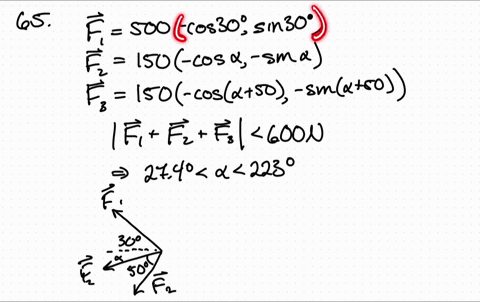 65. F⃗₁ = 500(-cos30°, sin30°)
F⃗₂ = 150(-cos α, -sin α)
F⃗₃ = 150(-cos(α+50), -sin(α+50))
|F⃗₁ + F⃗₂ + F⃗₃| < 600N
⇒ 27.4° < α < 223°
F⃗₁
30°
F⃗₂ α 50°
F⃗₂